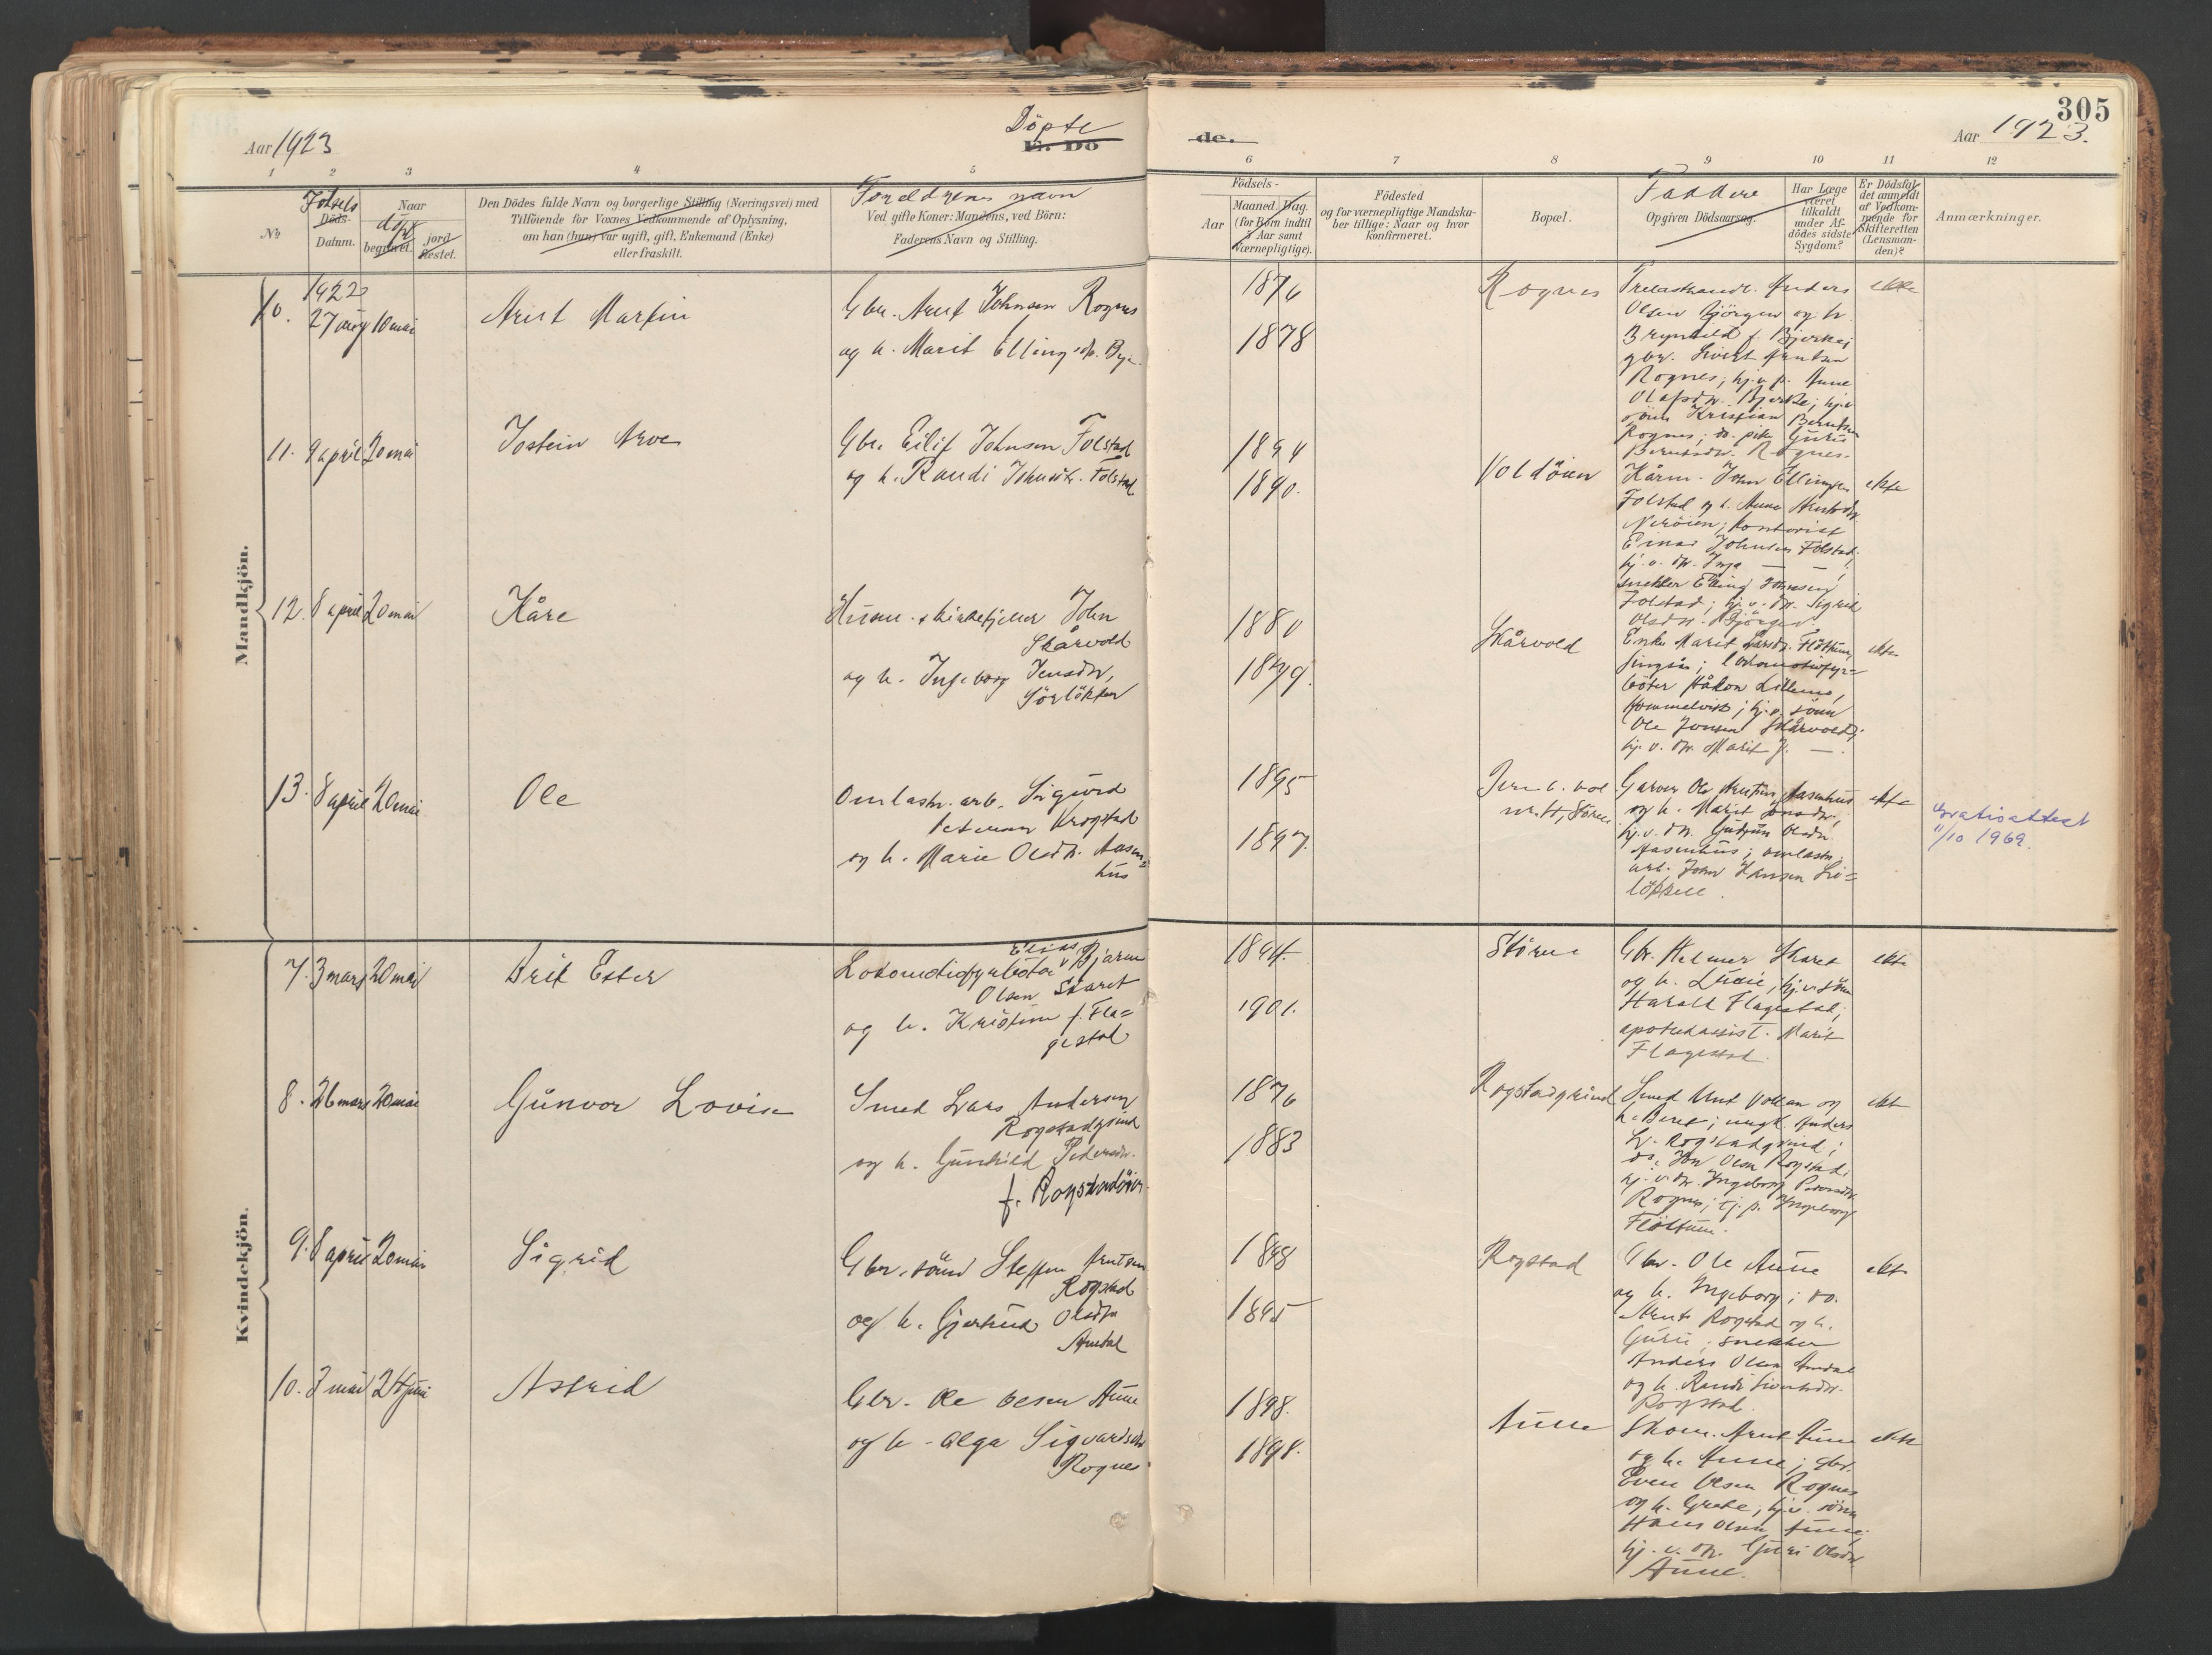 305
Aar 1923
Döpte
E. Dö
de.
Aar 1923.
1 2 3 4 5 6 7 8 9 10 11 12
No
Födsels
Döds-
Datum.
Naar
döpt
begravet.
jord
fæstet.
Den Dödes fulde Navn og borgerlige Stilling (Næringsvei) med
Tilföiende for Voxnes Vedkommende af Oplysning,
om han (hun) var ugift, gift, Enkemand (Enke)
eller fraskilt.
Foreldrenes navn
Ved gifte Koner: Mandens, ved Börn:
Faderens Navn og Stilling.
Födsels-
Aar
Maaned. Dag.
(for Börn indtil
5 Aar samt
Værnepligtige).
Födested
og for værnepligtige Mandska-
ber tillige: Naar og hvor
konfirmeret.
Bopæl.
Faddere
Opgiven Dödsaarsag.
Har Læge
været
tilkaldt
under Af-
dödes sidste
Sygdom?
Er Dödsfal-
det anmeldt
af Vedkom-
mende for
Skifteretten
(Lensman-
den)?
Anmærkninger.
Mandkjön.
10.
1922
27 aug 10 mai
Arnt Martin
Gbr. Arnt Johnsen Rognes
og h. Marit Ellingsdtr.
1876
1878
Rognes
Trelasthandl. Anders
Olsen Bjørgen og h.
Brynhild f. Bjerke;
gbr. Sivert Arntsen
Rognes; hj.v.p. Anne
Olafsdtr. Bjerke; hj.v.
sønn Kristian Berntsen
Rognes; do. pike Guru
Berntsdtr. Rognes
ekte
11. 9 april 20 mai
Jostein Arve
Gbr. Eilif Johnsen Folstad
og h. Randi Johnsdtr. Folstad
1894
1890.
Voldöien
Kårm. John Ellingsen
Folstad og h. Anne Arntsdtr.
Neröien; kontorist
Einar Johnsen Folstad;
hj.v. dtr. Inga — —;
snekker Elling Johnsen
Folstad; hj.v. dtr. Sigrid
Olsdtr. Bjørgen
ekte
12. 8 april 20 mai
Kåre
Husm. - kirketjener John
Skårvold
og h. Ingeborg Jensdtr.
Sörlökken
1880
1879.
Skårvold
Enke Marit Larsdtr. Fløttum,
Singsås; lokomotivfyr=
böter Håkon Lillemo,
Hommelvik; hj.v. sønn
Ole Jonsen Skårvold;
hj.v. dtr. Marit J. —.
ekte
13. 8 april 20 mai
Ole
Omlastn. arb. Sigurd
Petersen Krogstad
og h. Marie Olsdtr. Aasen=
hus
1895
1897.
Jernb. bol
nr. 11, Stören
Garver Ole Arntsen Aasenhus
og h. Marit Jonsdtr.;
hj.v. dtr. Gudrun Olsdtr.
Aasenhus; omlastn.
arb. John Hansen
ekte
Gratisattest
11/10 1969.
Kvindekjön.
7. 3 mars 20 mai
Brit Ester
Lokomotivfyrböter Elias Bjarne
Olsen Skaret
og h. Kristine f. Fla=
gestad
1894.
1901.
Stören
Gbr. Helmer Skaret
og h. Lucie; hj.v. sønn
Harald Flagestad;
apotekassist. Marit
Flagestad.
ekte
8. 26 mars 20 mai
Gunvor Lovise
Smed Lars Andersen
Rogstadgrind
og h. Gunhild Pedersdtr.
f. Rogstadöien.
1876
1883
Rogstadgrind
Smed Knut Vollan og
h. Beret; ungk. Anders
L. Rogstadgrind;
do. Jon Olsen Rogstad;
hj.v. dtr. Ingeborg Pedersdtr.
Rognes; tj. p. Ingeborg
Flöttum.
ekte
9. 8 april 20 mai
Sigrid
Gbr. sønn Steffen Arntsen
Rogstad
og h. Gjertrud Olsdtr.
Amdal
1898
1895
Rogstad
Gbr. Ole Aune
og h. Ingeborg; do.
Arnt Rogstad og h.
Guru; snekker
Anders Olsen Amdal
og h. Randi Sivertsdtr.
Rogstad.
ekte
10. 3 mai 24 juni
Astrid
Gbr. Ole Olsen Aune
og h. Olga Sigvardsdtr.
Rognes
1898.
1898.
Aune
Skom. Arnt Aune
og h. Anne; gbr.
Even Olsen Rognes
og h. Grete; hj.v. sønn
Hans Olsen Aune;
hj.v. dtr. Guri Olsdtr.
Aune.
ekte